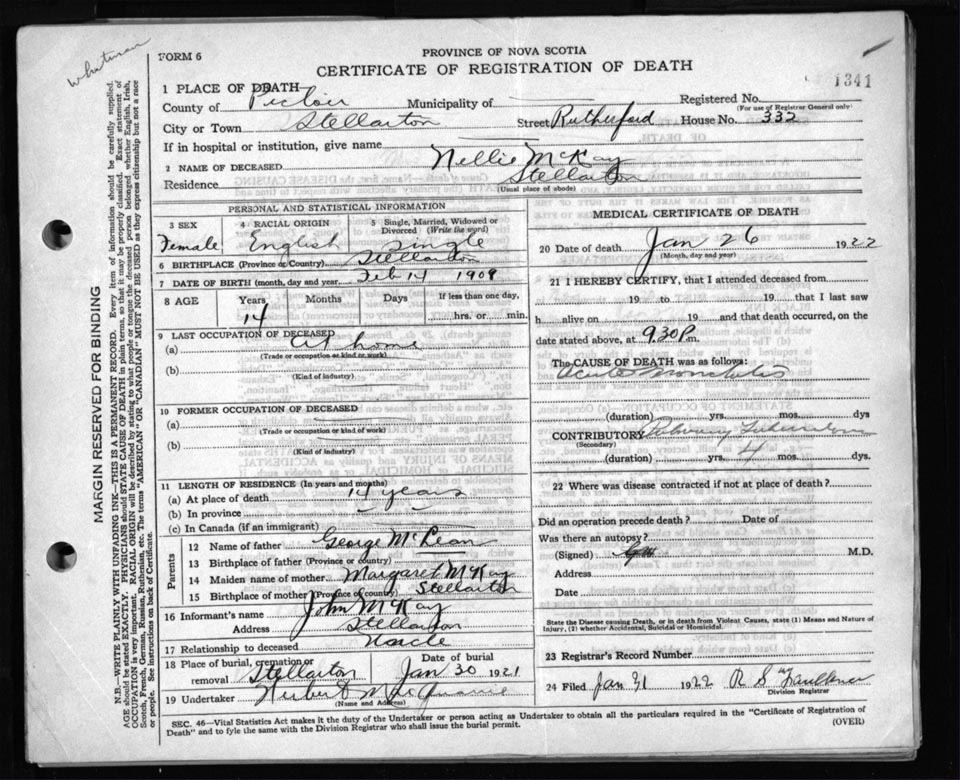 Whitman
FORM 6
PROVINCE OF NOVA SCOTIA
CERTIFICATE OF REGISTRATION OF DEATH
1341
1 PLACE OF DEATH
County of Pictou Municipality of Registered No.
(For use of Registrar General only)
City or Town Stellarton Street Rutherford House No. 332
If in hospital or institution, give name
2 NAME OF DECEASED Nellie McKay
Residence Stellarton
(Usual place of abode)
MARGIN RESERVED FOR BINDING
N.B.—WRITE PLAINLY WITH UNFADING INK—THIS IS A PERMANENT RECORD. Every item of information should be carefully supplied.
AGE should be stated EXACTLY. PHYSICIANS should STATE CAUSE OF DEATH in plain terms, so that it may be properly classified. Exact statement of
OCCUPATION is very important. RACIAL ORIGIN will be described by stating to what people or tongue the deceased person belonged whether English, Irish,
Scotch, French, German, Russian, Ruthenian, etc. The terms "AMERICAN" or "CANADIAN" MUST NOT BE USED as they express citizenship but not a race
or people. See instructions on back of Certificate.
PERSONAL AND STATISTICAL INFORMATION
3 SEX 4 RACIAL ORIGIN 5 Single, Married, Widowed or
Divorced (Write the word)
Female English Single
6 BIRTHPLACE (Province or Country) Stellarton
7 DATE OF BIRTH (month, day and year) Feb 14 1908
8 AGE Years Months Days If less than one day,
14 hrs. or min.
9 LAST OCCUPATION OF DECEASED
(a) At home
(Trade or occupation or kind or work)
(b)
(Kind of industry)
10 FORMER OCCUPATION OF DECEASED
(a)
(Trade or occupation or kind of work)
(b)
(Kind of industry)
11 LENGTH OF RESIDENCE (In years and months)
(a) At place of death 14 years
(b) In province
(c) In Canada (if an immigrant)
Parents
12 Name of father George McLean
13 Birthplace of father (Province or country)
14 Maiden name of mother Margaret McKay
15 Birthplace of mother (Province or country) Stellarton
16 Informant's name John McKay
Address Stellarton
17 Relationship to deceased Uncle
18 Place of burial, cremation or Date of burial
removal Stellarton Jan 30 1921
19 Undertaker Herbert
(Name and Address)
MEDICAL CERTIFICATE OF DEATH
20 Date of death Jan 26 1922
(Month, day and year)
21 I HEREBY CERTIFY, that I attended deceased from
19 to 19 that I last saw
h alive on 19 and that death occurred, on
date stated above, at 9.30 P m.
The CAUSE OF DEATH was as follows:
Acute Bronchitis
(duration) yrs. mos. dys
CONTRIBUTORY
(Secondary)
(duration) yrs. 4 mos. dys.
22 Where was disease contracted if not at place of death?
Did an operation precede death? Date of
Was there an autopsy?
(Signed) M.D.
Address
Date
State the Disease causing Death, or in death from Violent Causes, state (1) Means and Nature of
Injury, (2) whether Accidental, Suicidal or Homicidal.
23 Registrar's Record Number
24 Filed Jan 31 1922 R S Faulkner
Division Registrar
SEC. 46—Vital Statistics Act makes it the duty of the Undertaker or person acting as Undertaker to obtain all the particulars required in the "Certificate of Registration of
Death" and to fyle the same with the Division Registrar who shall issue the burial permit. (OVER)